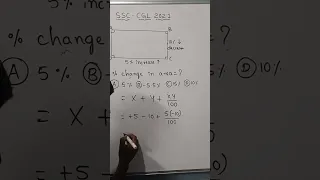 SSC - CGL 2021
% change
B
C
5% increase
% change in area = ?
Ⓐ 5% Ⓑ -5.5% Ⓒ 5% Ⓓ 10%
= x + y + xy/100
= +5 - 10 + 5(-10)/100